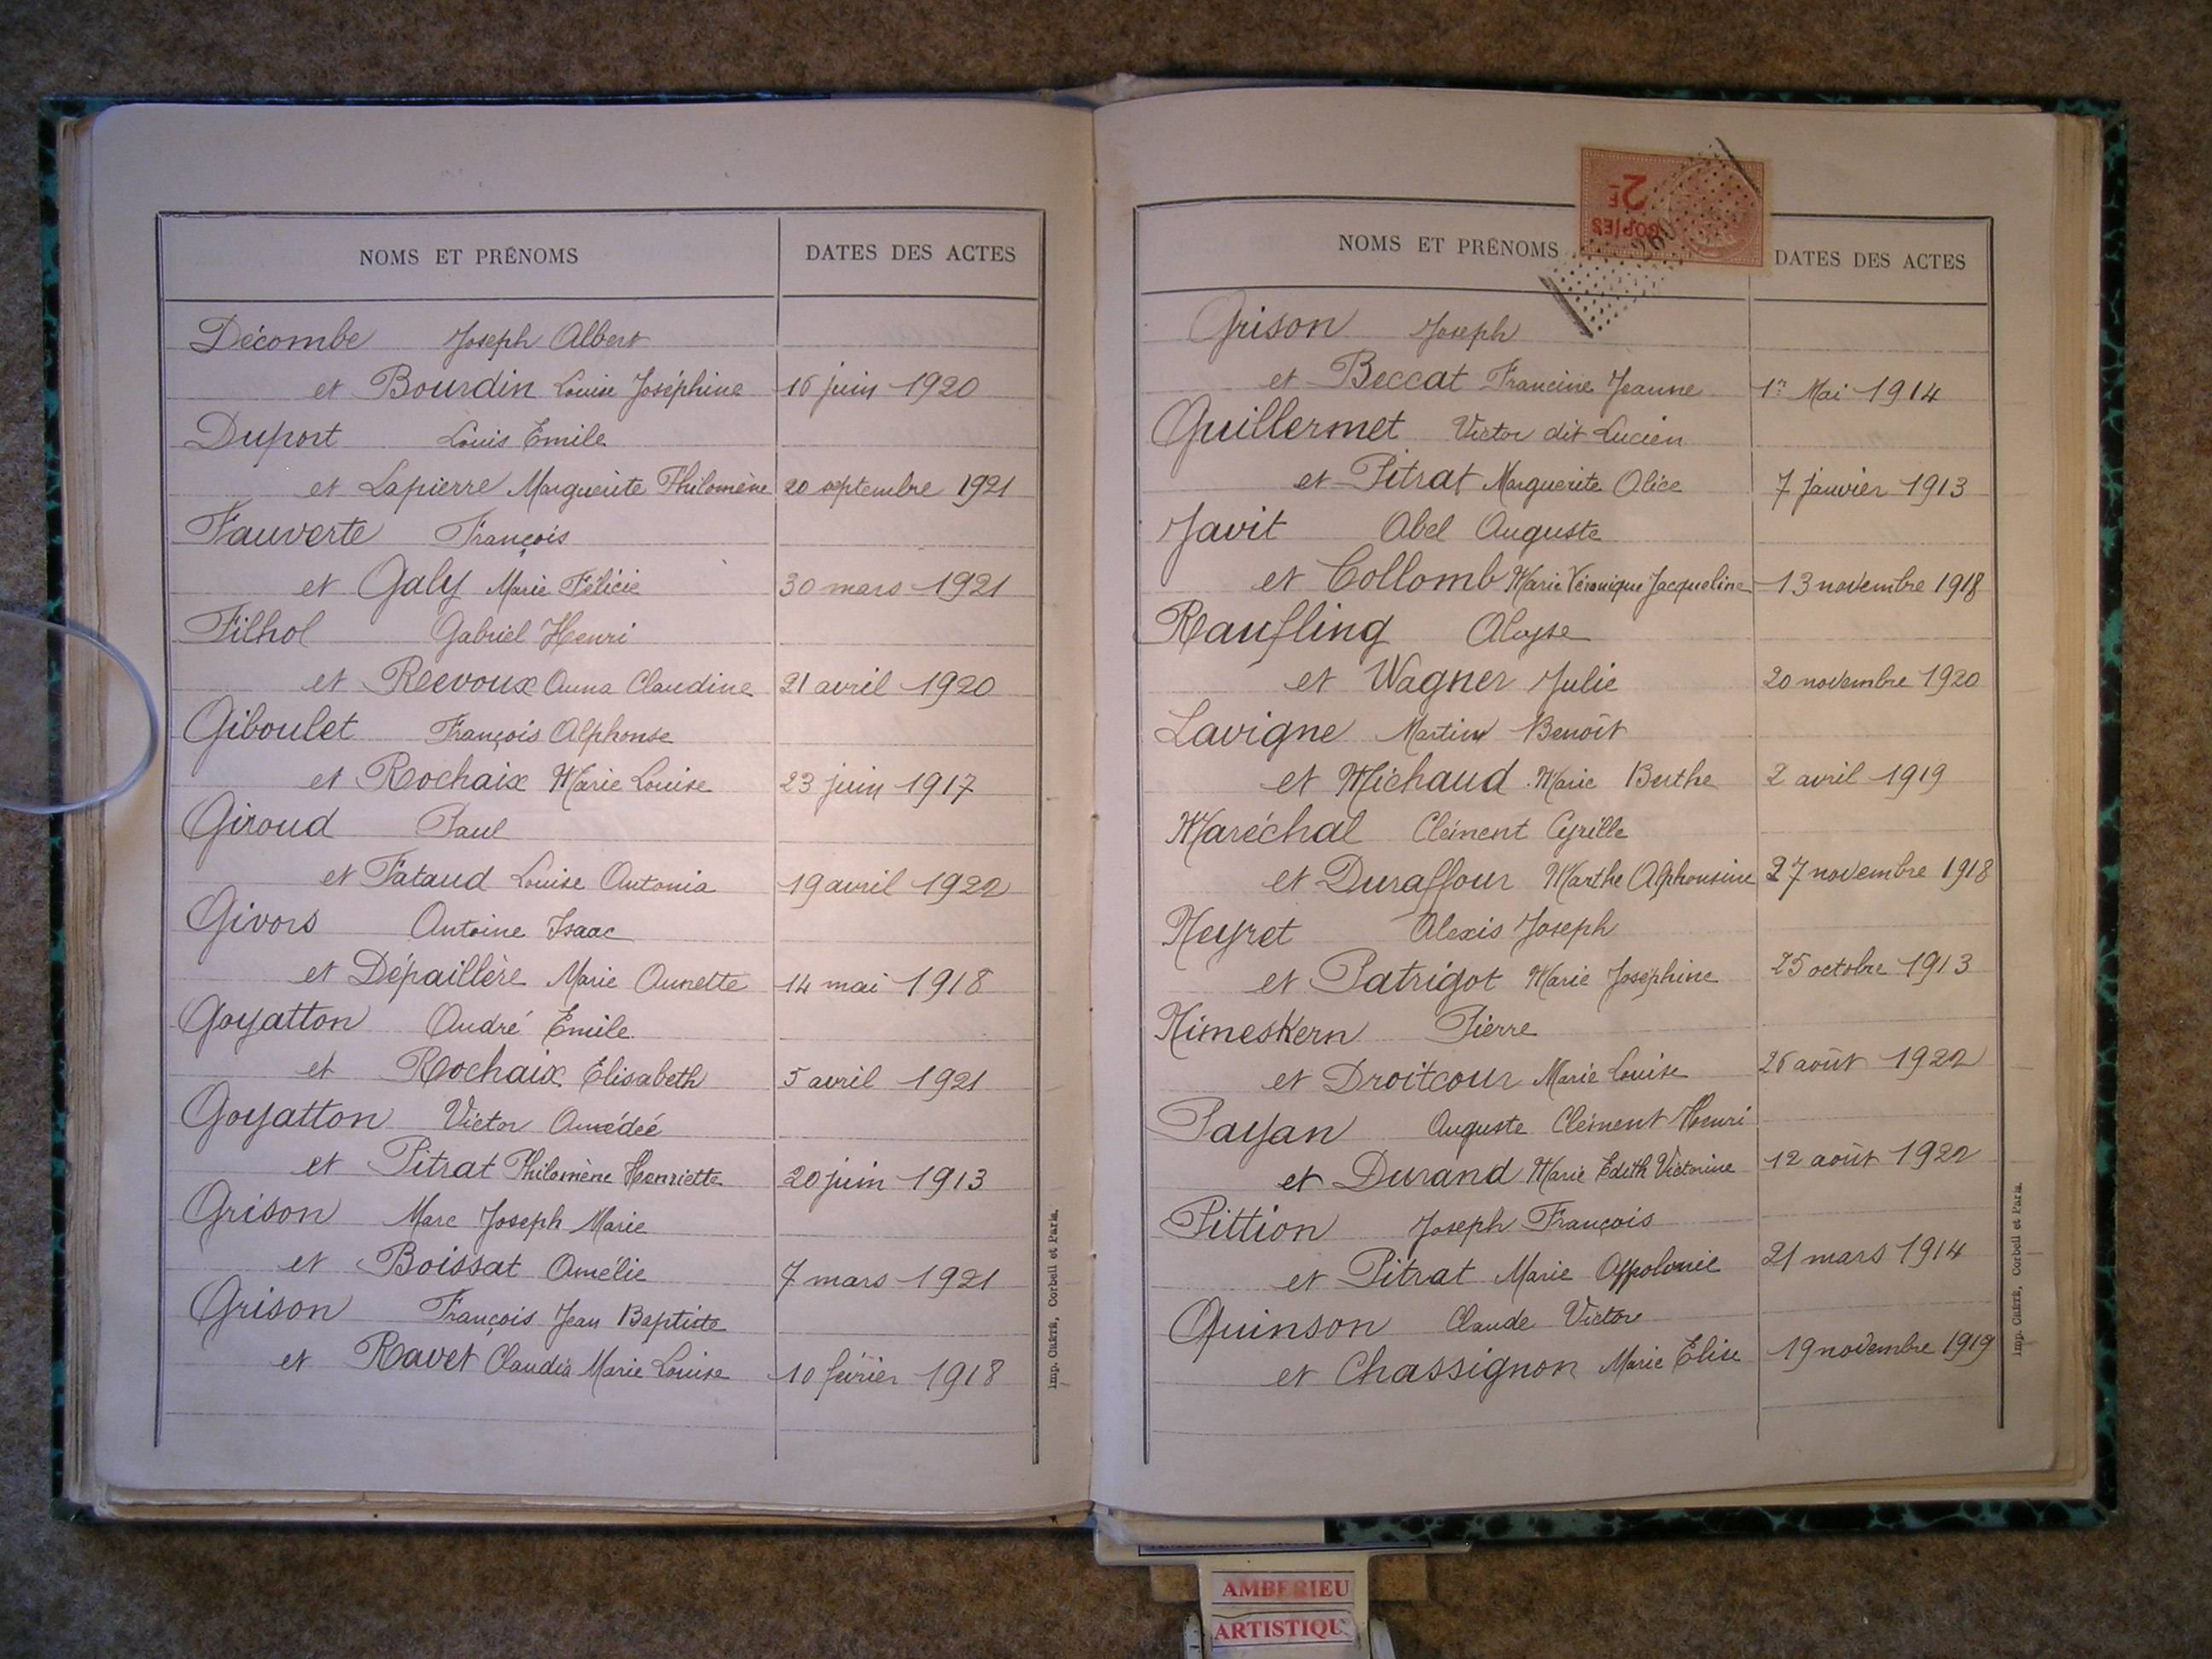 NOMS ET PRÉNOMS DATES DES ACTES
Décombe Joseph Albert
et Bourdin Louise Joséphine 16 juin 1920
Duport Louis Emile
et Lapierre Marguerite Philomène 20 septembre 1921
Fauverte François
et Galy Marie Félicie 30 mars 1921
Filhol Gabriel Henri
et Reevoux Anna Claudine 21 avril 1920
Giboulet François Alphonse
et Rochaix Marie Louise 23 juin 1917
Giroud Paul
et Fataud Louise Antonia 19 avril 1922
Givors Antoine Isaac
et Dépaillère Marie Annette 14 mai 1918
Goyatton André Emile
et Rochaix Elisabeth 5 avril 1921
Goyatton Victor Amédée
et Pitrat Philomène Henriette 20 juin 1913
Grison Marc Joseph Marie
et Boissat Amélie 7 mars 1921
Grison François Jean Baptiste
et Ravet Claudia Marie Louise 10 février 1918
Imp. CRÉTÉ, Corbeil et Paris.
NOMS ET PRÉNOMS DATES DES ACTES
COPIES
2F
Grison Joseph
et Beccat Francine Jeanne 1er Mai 1914
Guillermet Victor dit Lucien
et Pitrat Marguerite Alice 7 janvier 1913
Javit Abel Auguste
et Collomb Marie Véronique Jacqueline 13 novembre 1918
Raufling Aloyse
et Wagner Julie 20 novembre 1920
Lavigne Martin Benoît
et Michaud Marie Berthe 2 avril 1919
Maréchal Clément Cyrille
et Duraffour Marthe Alphonsine 27 novembre 1918
Neyret Alexis Joseph
et Patrigot Marie Joséphine 25 octobre 1913
Nimeskern Pierre
et Droitcour Marie Louise 26 août 1922
Payan Auguste Clément Henri
et Durand Marie Edith Victorine 12 août 1922
Pittion Joseph François
et Pitrat Marie Appolonie 21 mars 1914
Quinson Claude Victor
et Chassignon Marie Elise 19 novembre 1919
Imp. CRÉTÉ, Corbeil et Paris.
AMBERIEU
ARTISTIQU